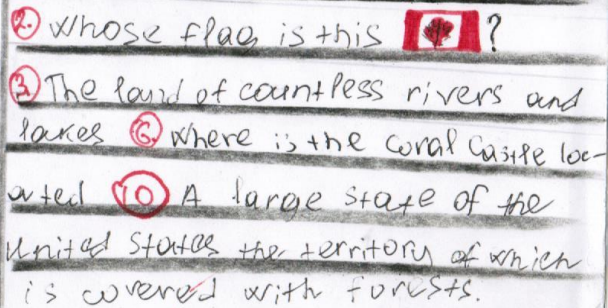 2. Whose flag is this ?
3. The land of countless rivers and
lakes 6. Where is the Coral Castle loc-
ated 10 A large state of the
United States the territory of which
is covered with forests.